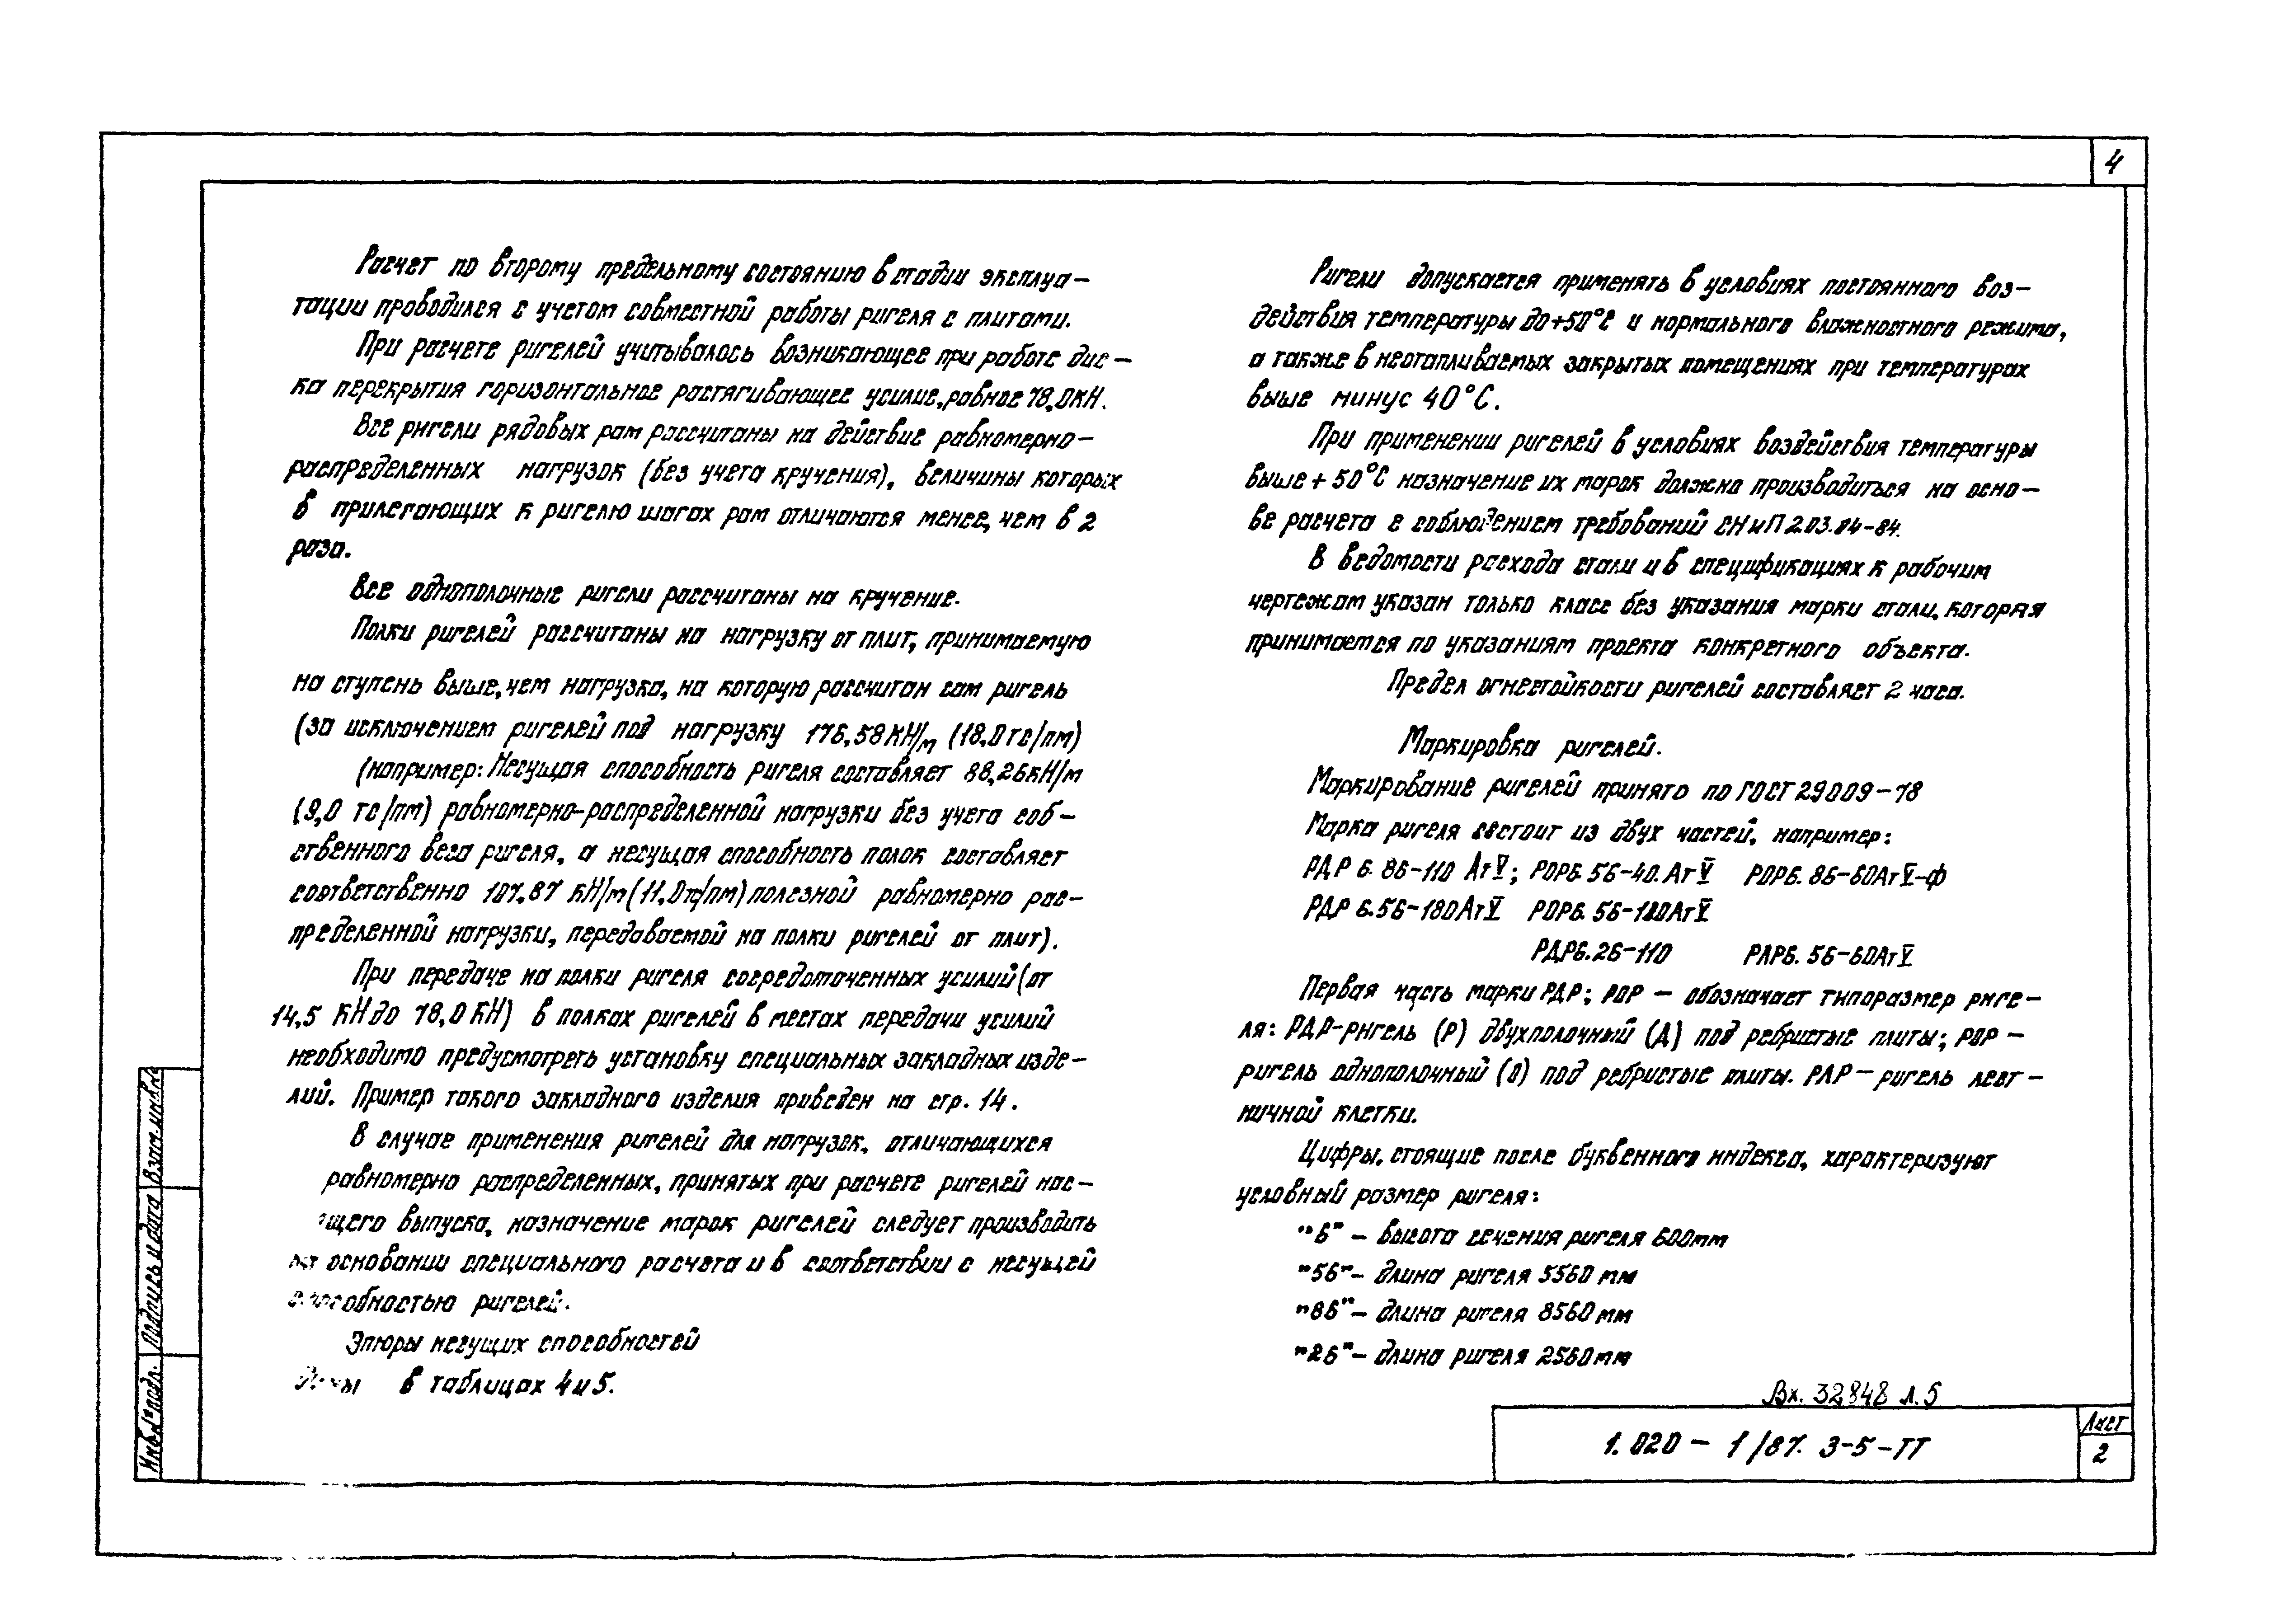 4
Расчет по второму предельному состоянию в стадии эксплуа-
тации проводился с учетом совместной работы ригеля с плитами.
При расчете ригелей учитывалось возникающее при работе дис-
ка перекрытия горизонтальное растягивающее усилие, равное 78,0кН.
Все ригели рядовых рам рассчитаны на действие равномерно-
распределенных нагрузок (без учета кручения), величины которых
в прилегающих к ригелю шагах рам отличаются менее, чем в 2
раза.
Все однополочные ригели рассчитаны на кручение.
Полки ригелей рассчитаны на нагрузку от плит, принимаемую
на ступень выше, чем нагрузка, на которую рассчитан сам ригель
(за исключением ригелей под нагрузку 176,58 кН/м (18,0 тс/пм)
(например: Несущая способность ригеля составляет 88,26кН/м
(9,0 тс/пм) равномерно-распределенной нагрузки без учета соб-
ственного веса ригеля, а несущая способность полок составляет
соответственно 107,87 кН/м (11,0тс/пм) полезной равномерно рас-
пределенной нагрузки, передаваемой на полки ригелей от плит).
При передаче на полки ригеля сосредоточенных усилий (от
14,5 кН до 78,0 кН) в полках ригелей в местах передачи усилий
необходимо предусмотреть установку специальных закладных изде-
лий. Пример такого закладного изделия приведен на стр. 14.
В случае применения ригелей для нагрузок, отличающихся
равномерно распределенных, принятых при расчете ригелей нас-
щего выпуска, назначение марок ригелей следует производить
на основании специального расчета и в соответствии с несущей
способностью ригелей.
Эпюры несущих способностей
в таблицах 4 и 5.
Ригели допускается применять в условиях постоянного воз-
действия температуры до +50°С и нормального влажностного режима,
а также в неотапливаемых закрытых помещениях при температурах
выше минус 40°С.
При применении ригелей в условиях воздействия температуры
выше + 50°С назначение их марок должно производиться на осно-
ве расчета с соблюдением требований СНиП 2.03.04-84.
В ведомости расхода стали и в спецификациях к рабочим
чертежам указан только класс без указания марки стали, которая
принимается по указаниям проекта конкретного объекта.
Предел огнестойкости ригелей составляет 2 часа.
Маркировка ригелей.
Маркирование ригелей принято по ГОСТ 29009-78
Марка ригеля состоит из двух частей, например:
РДР 6. 86-110 АтV; РОР6. 56-40. АтV РОР6. 86-60АтV-ф
РДР 6.56-180АтV РОР6. 56-180АтV
РДР6.26-110 РЛР6. 56-60АтV
Первая часть марки РДР; РОР - обозначает типоразмер риге-
ля: РДР-ригель (Р) двухполочный (Д) под ребристые плиты; РОР -
ригель однополочный (О) под ребристые плиты. РЛР - ригель лест-
ничной клетки.
Цифры, стоящие после буквенного индекса, характеризуют
условный размер ригеля:
"6" - высота сечения ригеля 600мм
"56" - длина ригеля 5560 мм
"86" - длина ригеля 8560 мм
"26" - длина ригеля 2560мм
Вх. 32848 л. 5
1.020 - 1/87. 3-5-ТТ
Лист
2
Инв. № подл.
Подпись и дата
Взам. инв. №